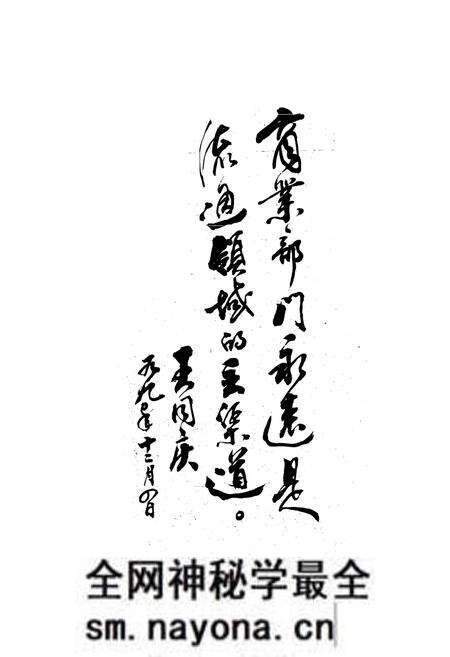 商業部門永遠是
流通領域的主渠道。
王同庆
九〇年十二月四日
全网神秘学最全
sm.nayona.cn